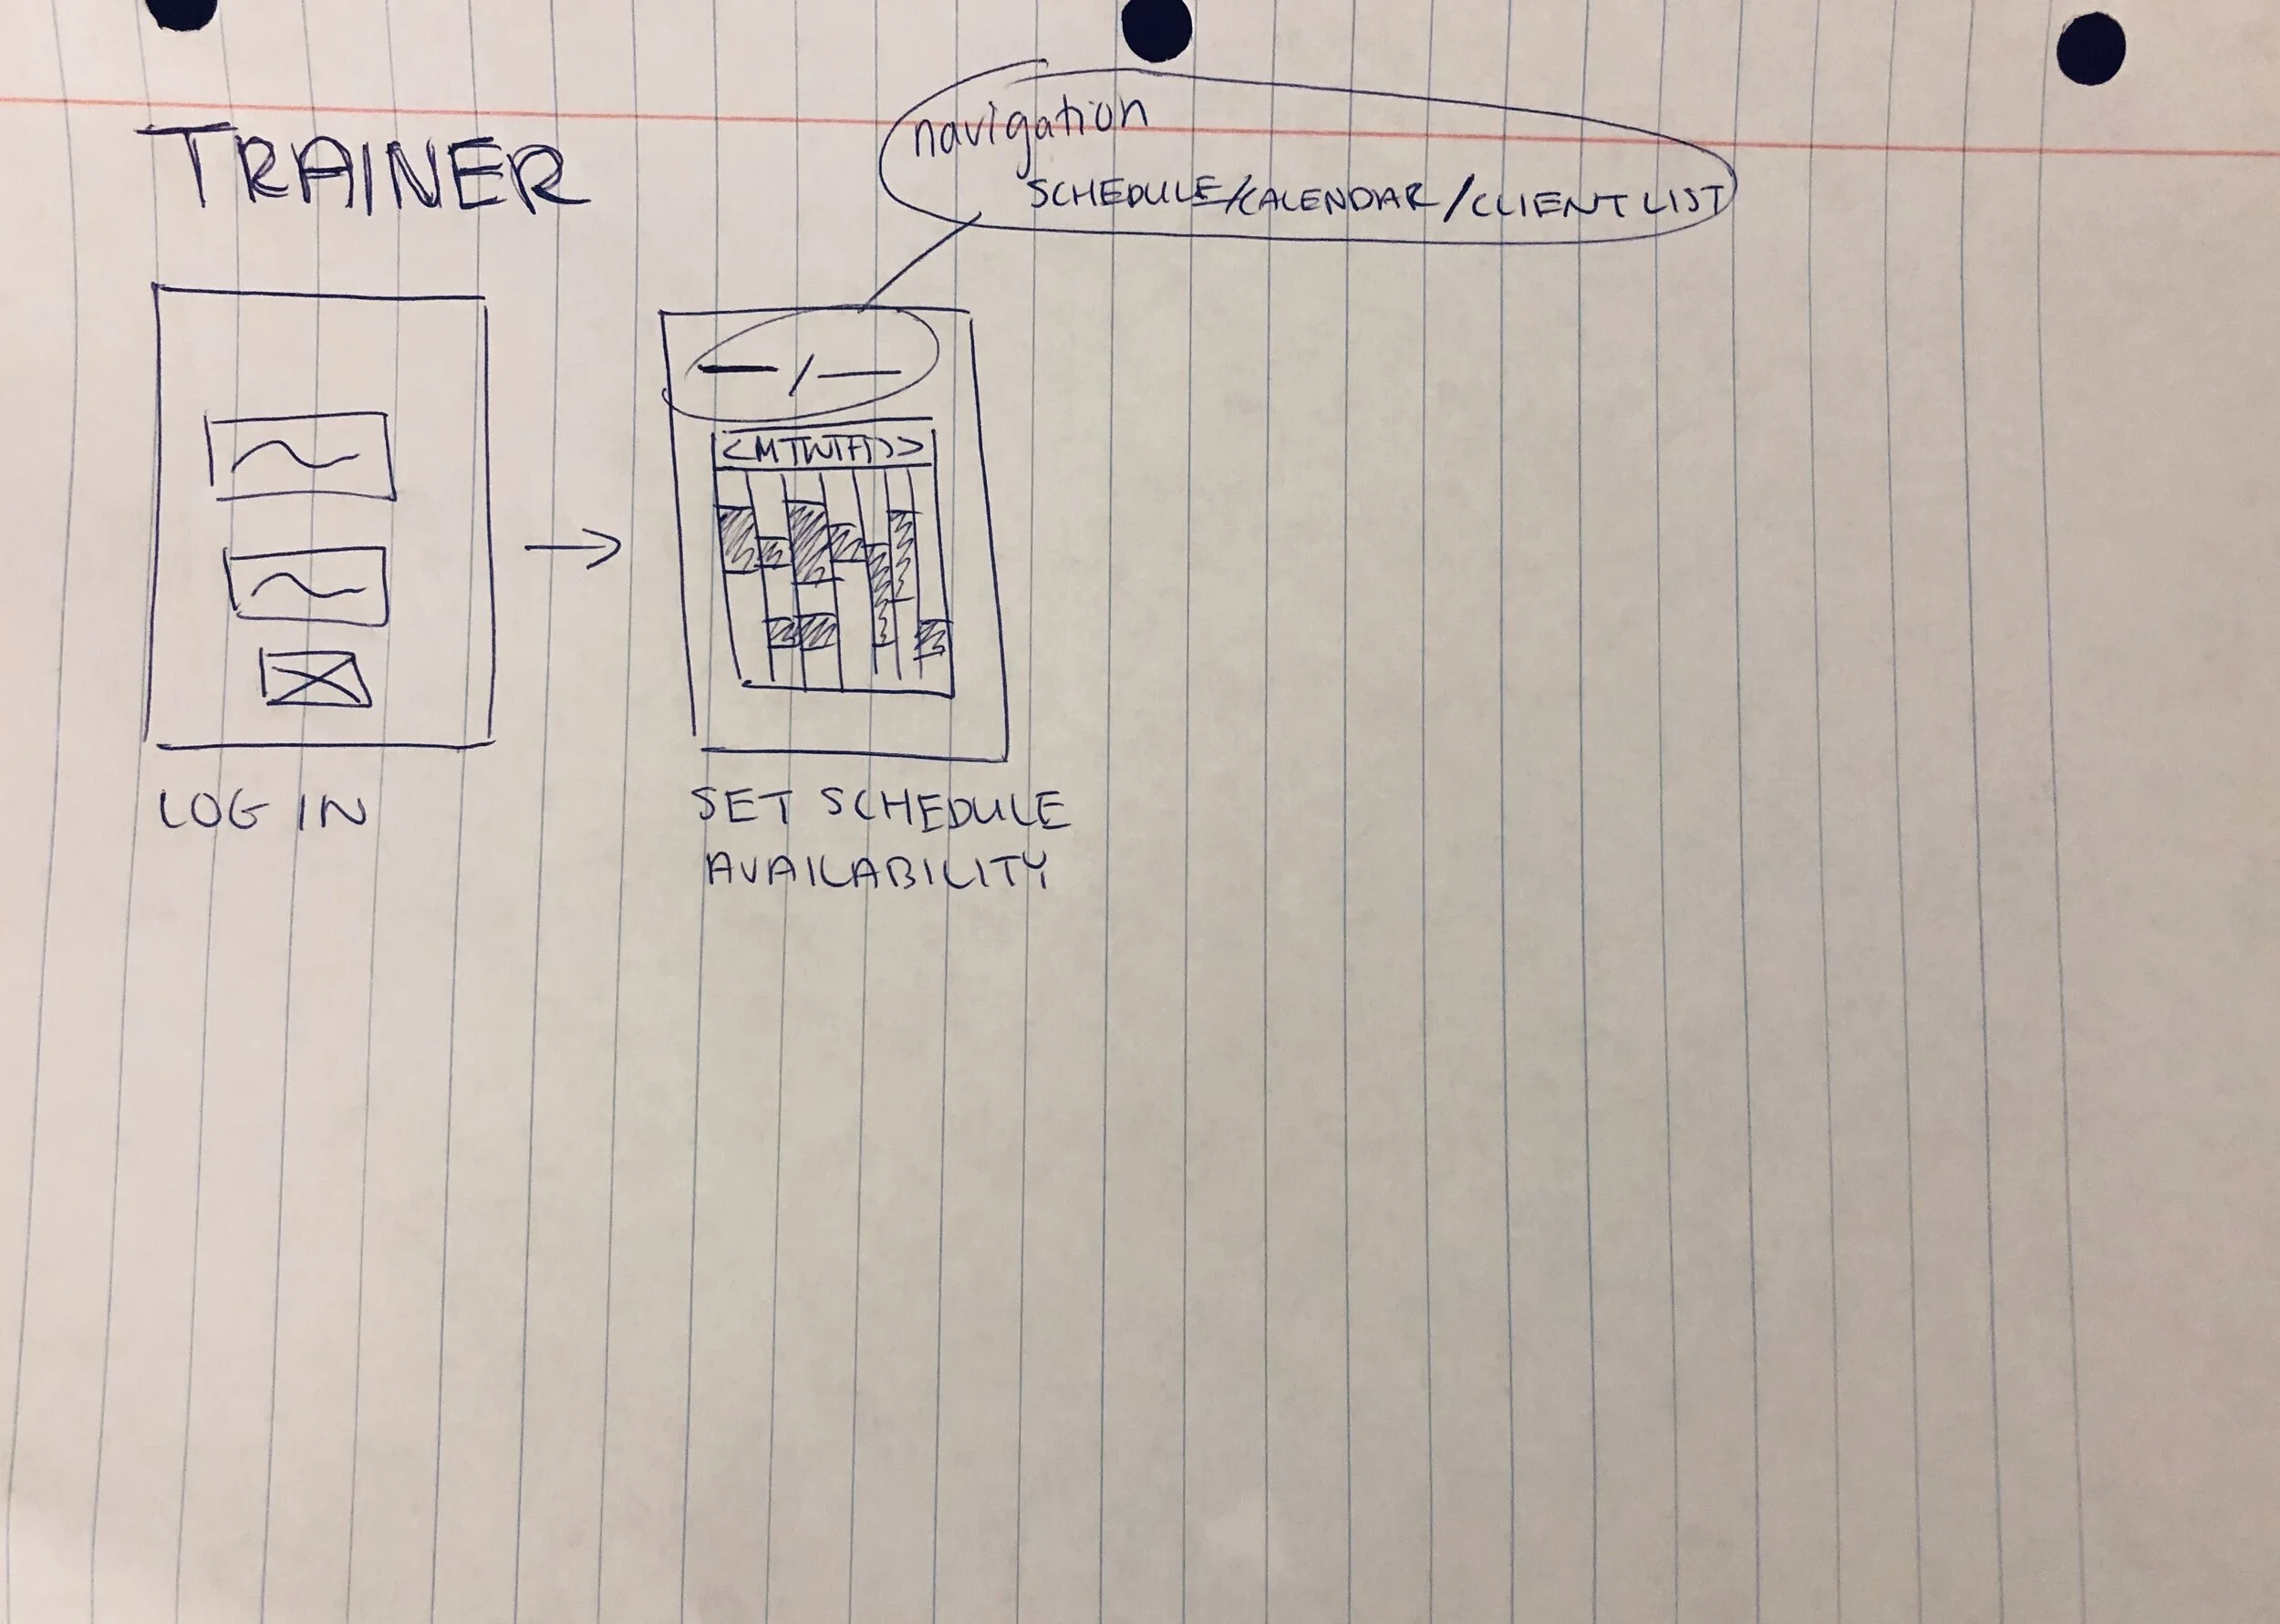 TRAINER
navigation
SCHEDULE/CALENDAR/CLIENT LIST
LOG IN
SET SCHEDULE
AVAILABILITY